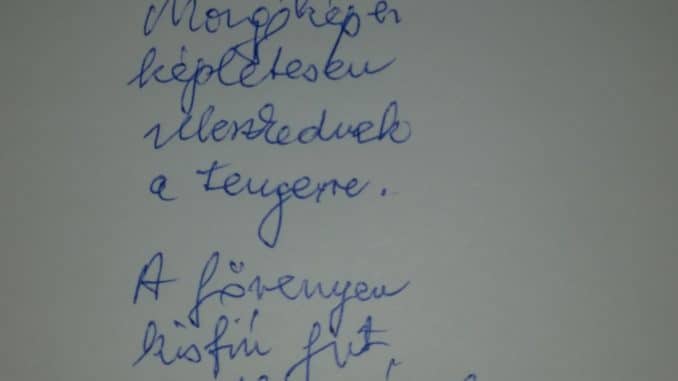 Mozgóképei
képletesen
illeszkednek
a tengerre.
A fövenyen
kisfiú fut